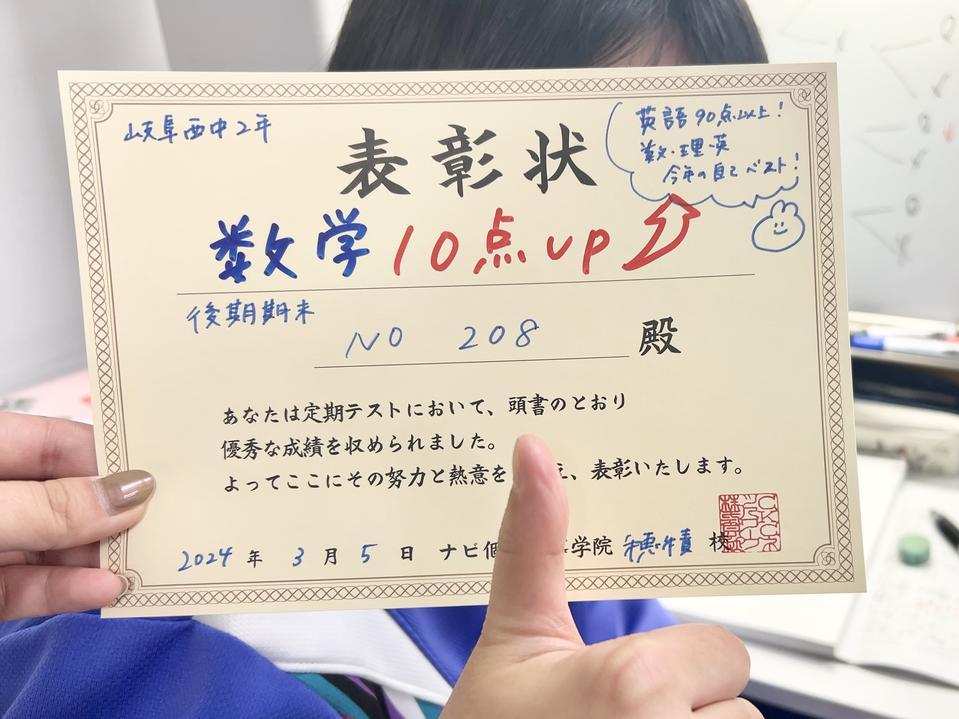 岐阜西中2年
表彰状
英語90点以上!
数・理・英
今年の自己ベスト!
数学10点up
後期期末
NO 208 殿
あなたは定期テストにおいて、頭書のとおり
優秀な成績を収められました。
よってここにその努力と熱意を 、表彰いたします。
2024年3月5日 ナビ個 学院 穂積 校